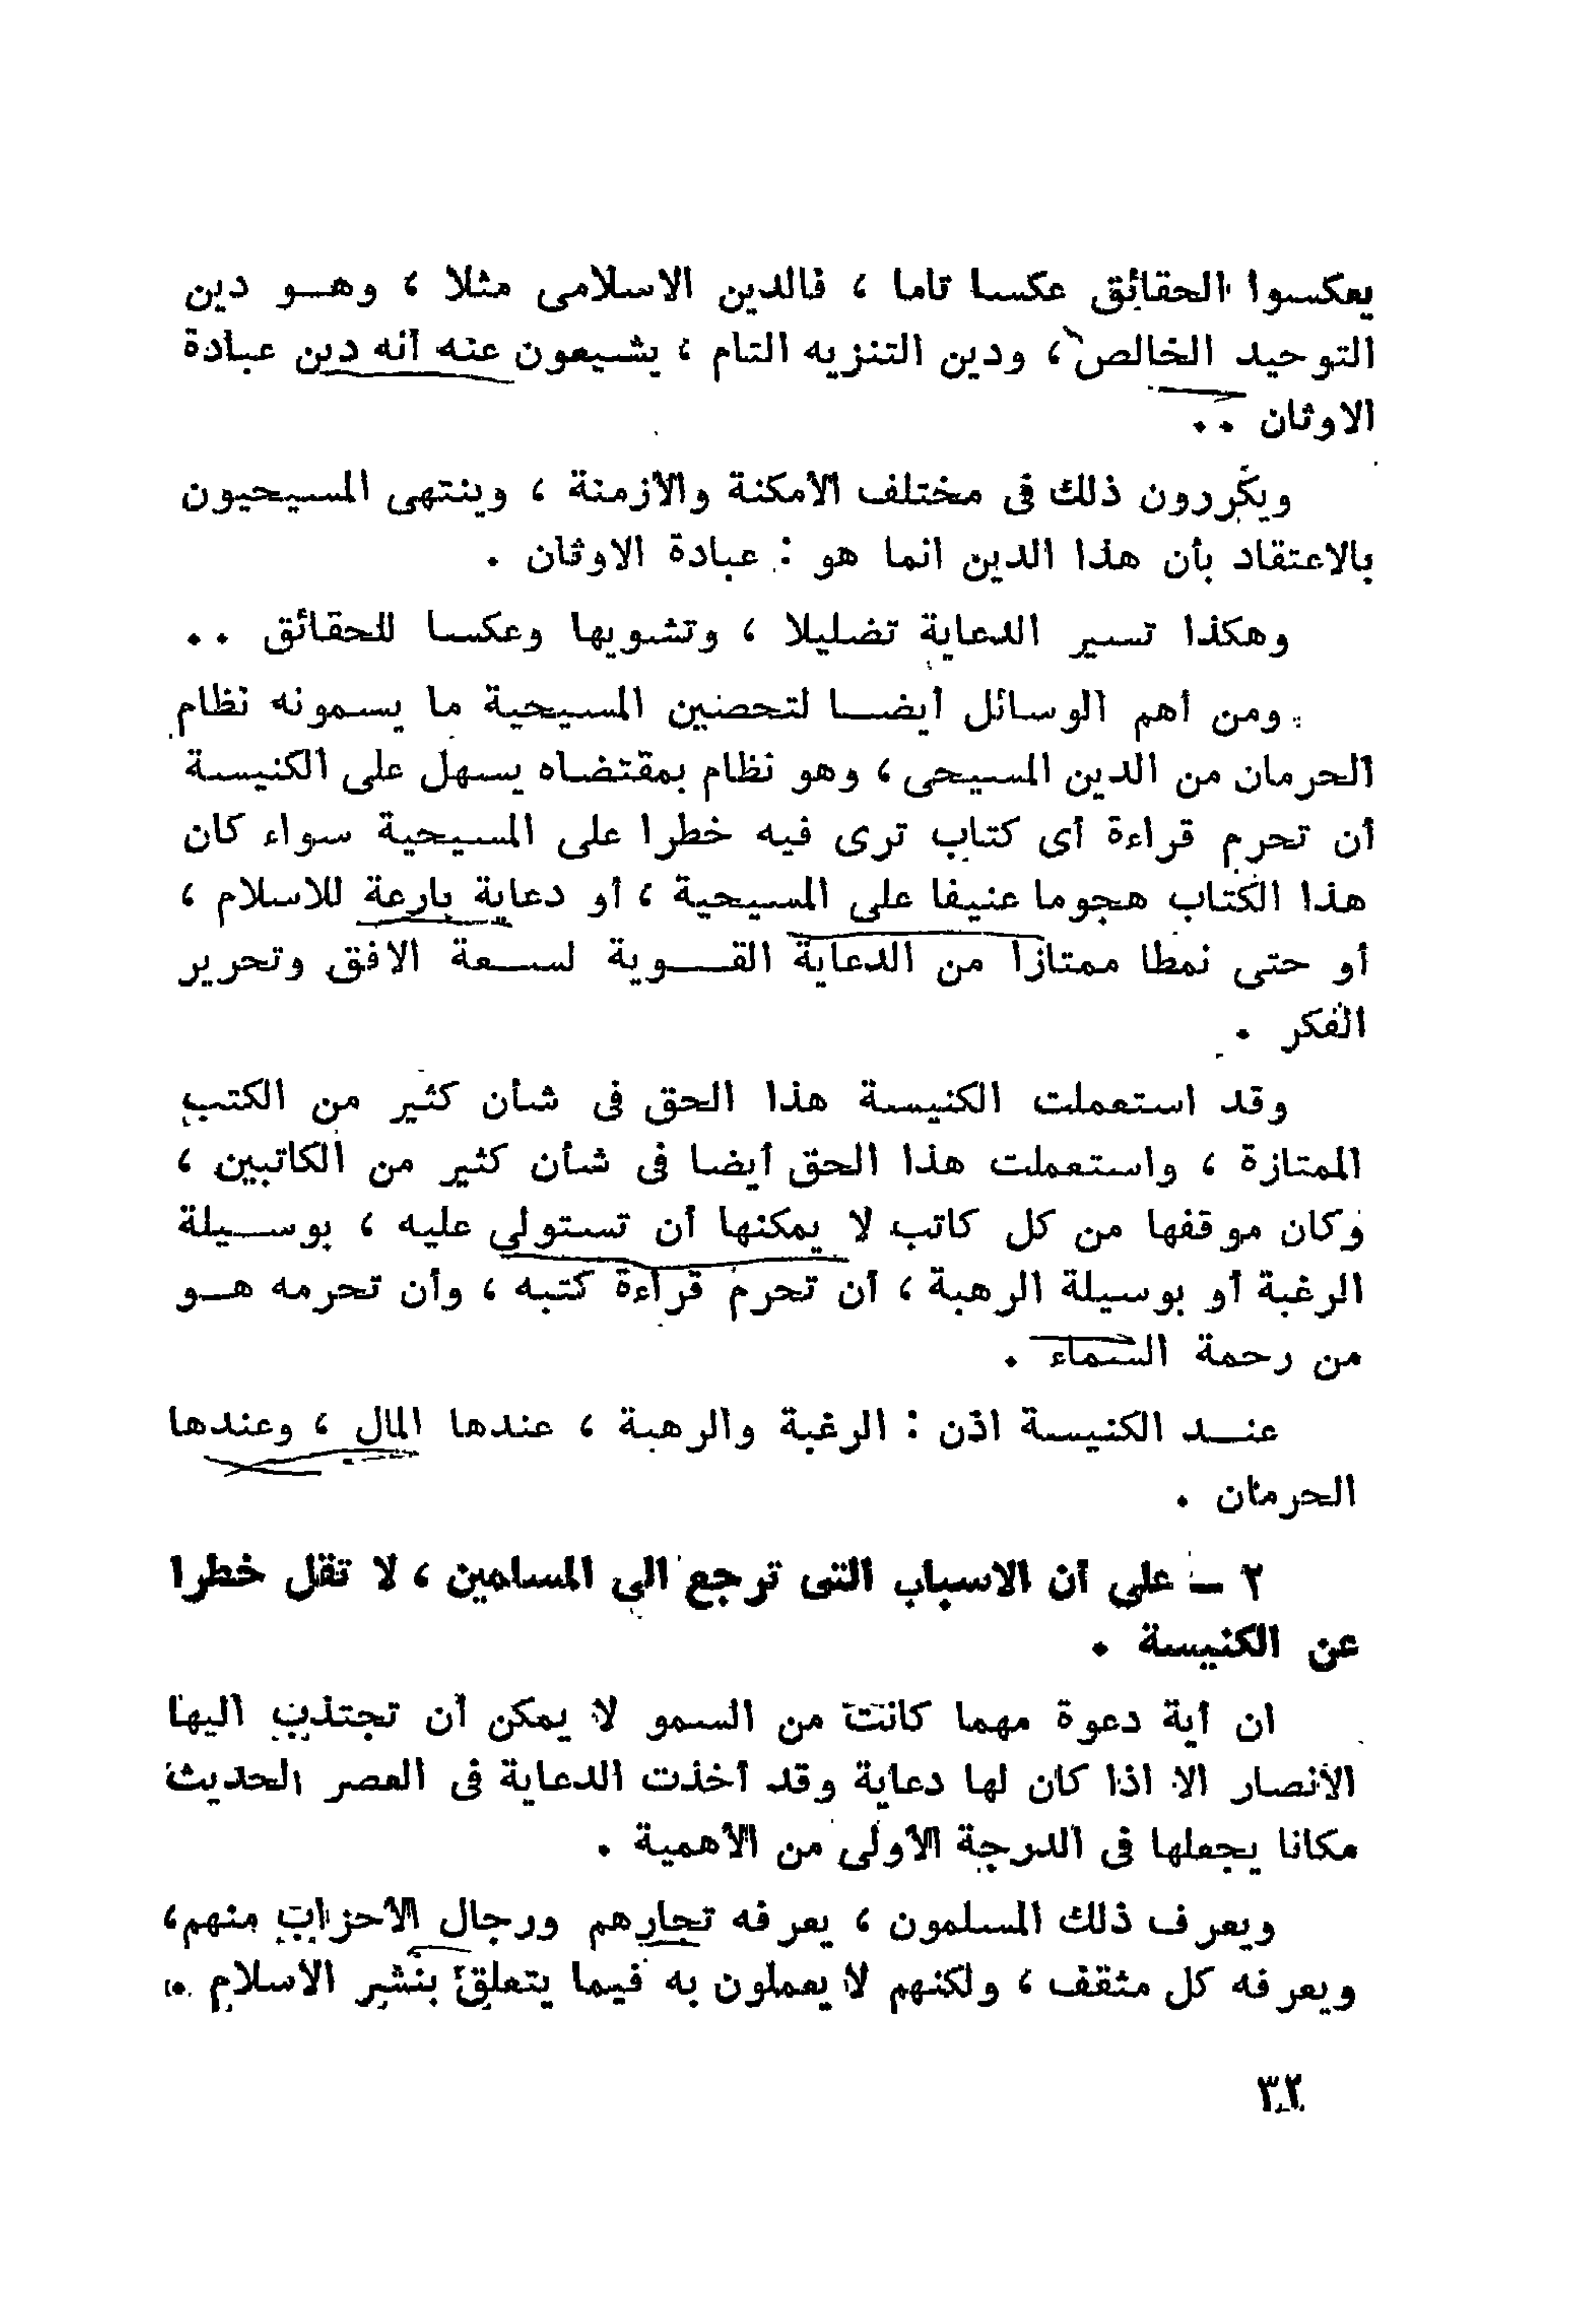 يعكسوا الحقائق عكسا تاما ، فالدين الاسلامى مثلا ، وهـو دين
التوحيد الخالص ، ودين التنزيه التام ، يشيعون عنه أنه دين عبادة
الاوثان ..
ويكررون ذلك فى مختلف الأمكنة والأزمنة ، وينتهى المسيحيون
بالاعتقاد بأن هذا الدين انما هو : عبادة الاوثان .
وهكذا تسير الدعاية تضليلا ، وتشويها وعكسا للحقائق ..
ومن أهم الوسائل أيضـا لتحصين المسيحية ما يسمونه نظام
الحرمان من الدين المسيحى ، وهو نظام بمقتضاه يسهل على الكنيسة
أن تحرم قراءة أى كتاب ترى فيه خطرا على المسيحية سواء كان
هذا الكتاب هجوما عنيفا على المسيحية ، أو دعاية بارعة للاسلام ،
أو حتى نمطا ممتازا من الدعاية القــوية لسـعة الافق وتحرير
الفكر .
وقد استعملت الكنيسة هذا الحق فى شأن كثير من الكتب
الممتازة ، واستعملت هذا الحق أيضا فى شأن كثير من الكاتبين ،
وكان موقفها من كل كاتب لا يمكنها أن تستولى عليه ، بوسـيلة
الرغبة أو بوسيلة الرهبة ، أن تحرم قراءة كتبه ، وأن تحرمه هـو
من رحمة السماء .
عنـد الكنيسة اذن : الرغبة والرهبة ، عندها المال ، وعندها
الحرمان .
٢ — على أن الاسباب التى ترجع الى المسلمين ، لا تقل خطرا
عن الكنيسة .
ان أية دعوة مهما كانت من السمو لا يمكن أن تجتذب اليها
الأنصار الا اذا كان لها دعاية وقد أخذت الدعاية فى العصر الحديث
مكانا يجعلها فى الدرجة الأولى من الأهمية .
ويعرف ذلك المسلمون ، يعرفه تجارهم ورجال الأحزاب منهم،
ويعرفه كل مثقف ، ولكنهم لا يعملون به فيما يتعلق بنشر الاسلام .
٣٢